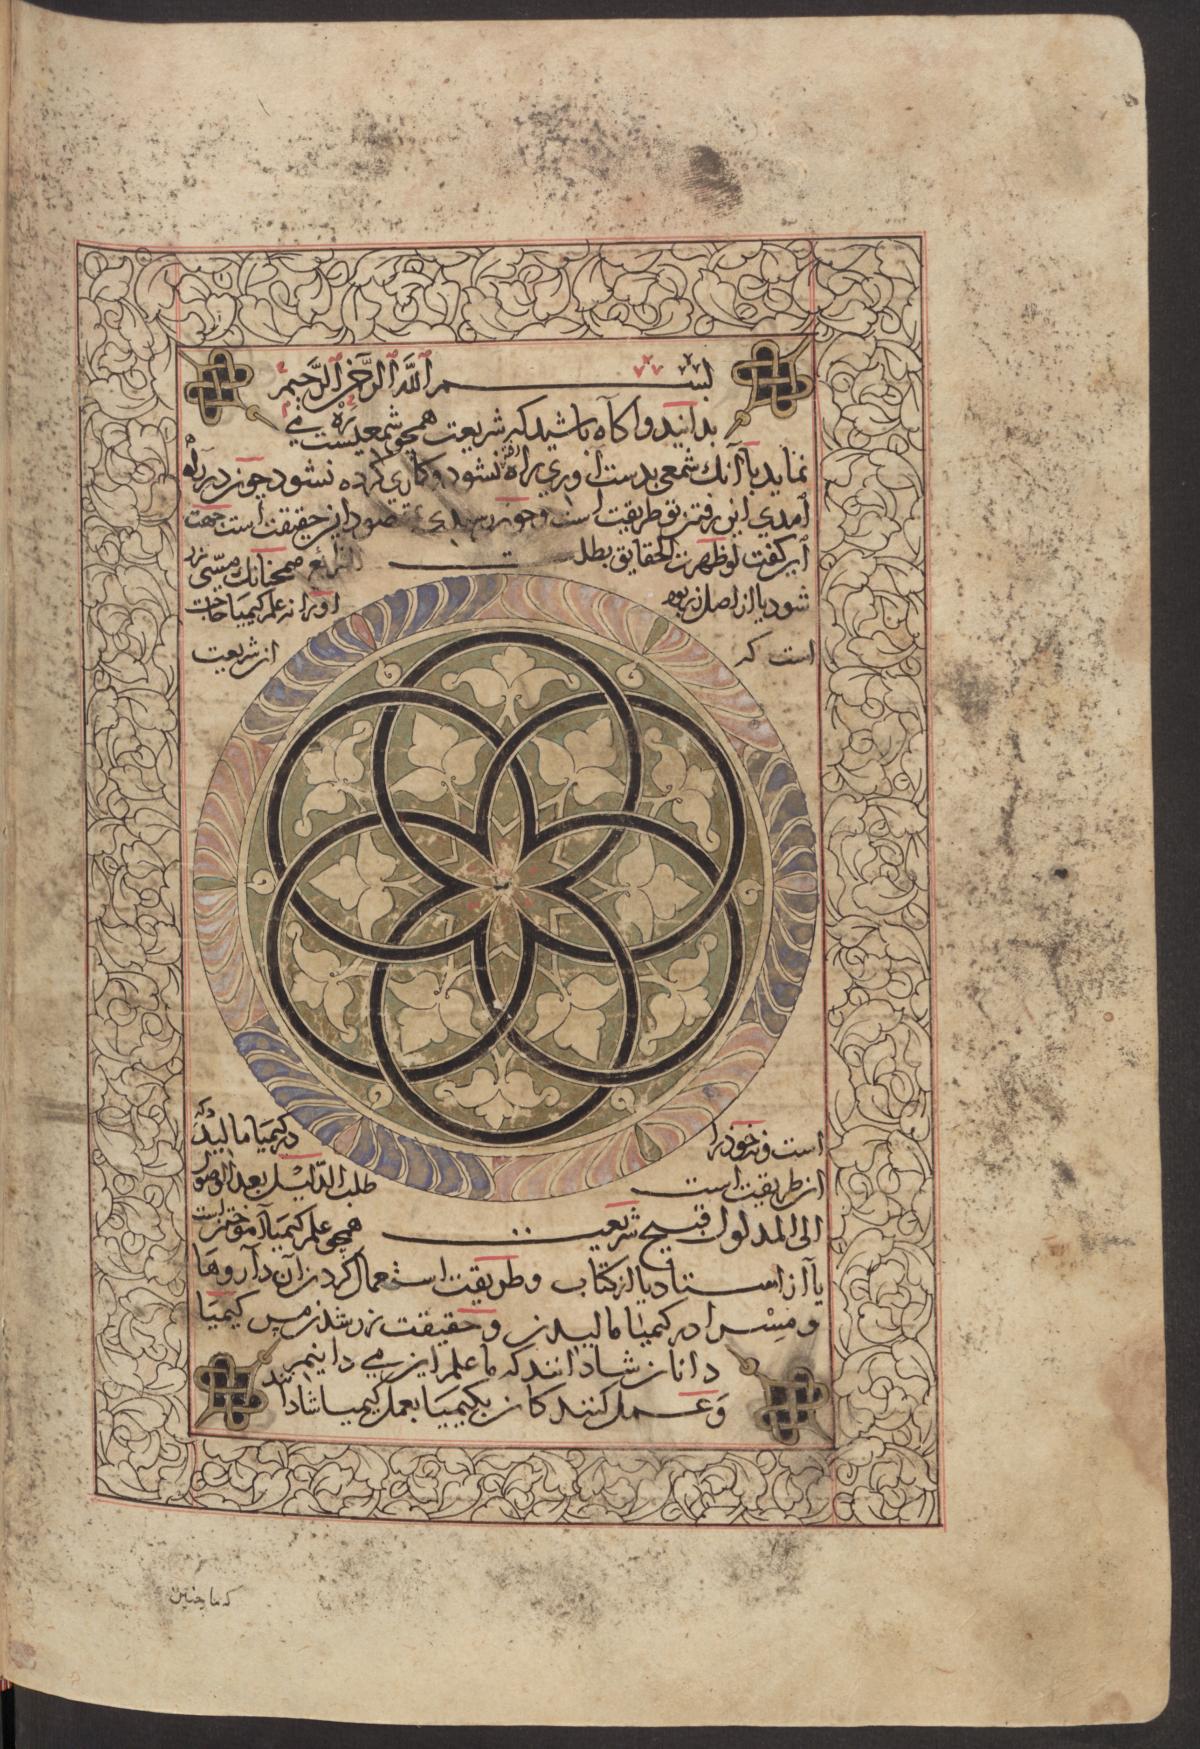 بســـــم اللّه الرَّحمٰن الرَّحيم
بدانيد و آکاه باشيد که شريعت همچو شمعيست ره می
نمايد بی آنک شمعی بدست اوری براه رفته نشود و کاری کرده نشود چون در راه
آمدي اين رفتن تو طريقت است و چون رسيدی بمقصود اين حقيقت است جهت
اين کفت لو ظهرت الحقايق بطلت الشرائع همچنانک مسّی زر
شود يا از اصل زر بود او را نه علم کيميا حاجت
است که از شريعت
است و نه خود را در کيميا ماليدن که
از طريقت است طلب الدّليل بعد الوصول
الی المدلول قبيح شريعت همچو علم کيميا آموختنست
يا از استاد يا از کتاب و طريقت استعمال کردن آن داروها
و مس را در کيميا ماليدن و حقيقت زر شدن مس کيميا
دانان شادانند که ما علم اين می دانيم
و عمل کنندکان بکيميا بعمل کيميا شادانند
که ما چنين